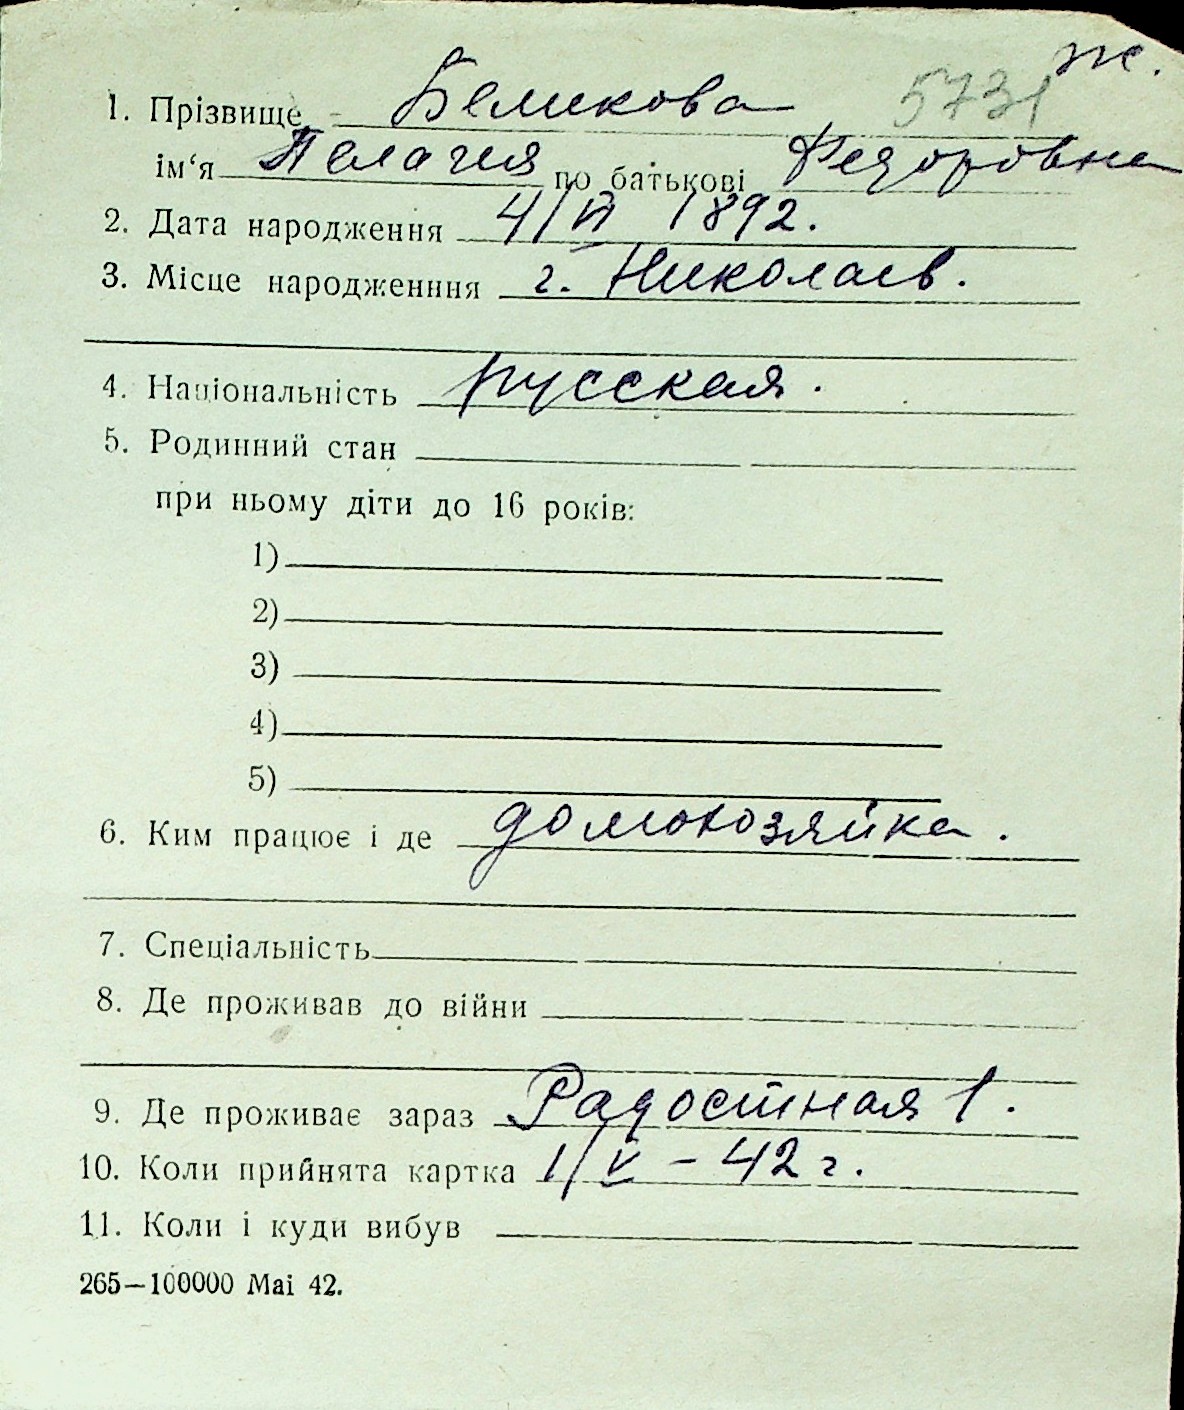 ж.
5731
1. Прізвище Беликова
ім‘я Пелагея по батькові Федоровна
2. Дата народження 4/II 1892.
3. Місце народженння г. Николаев.
4. Національність русская.
5. Родинний стан
при ньому діти до 16 років:
1)
2)
3)
4)
5)
6. Ким працює і де домохозяйка.
7. Спеціальність
8. Де проживав до війни
9. Де проживає зараз Радостная 1.
10. Коли прийнята картка 1/V – 42 г.
11. Коли і куди вибув
265—100000 Маі 42.